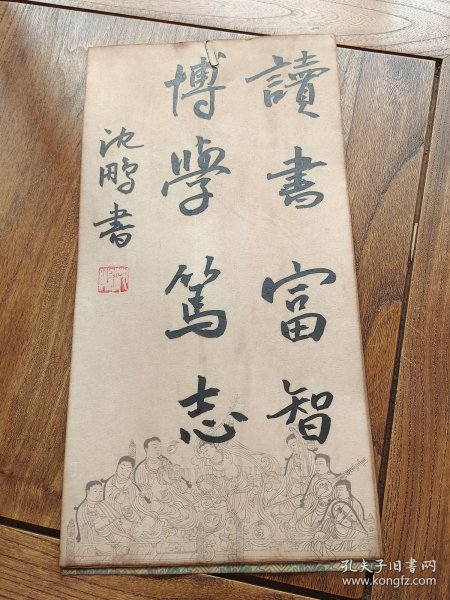 讀書富智
博學篤志
沈鹏書
孔夫子旧书网
www.kongfz.com